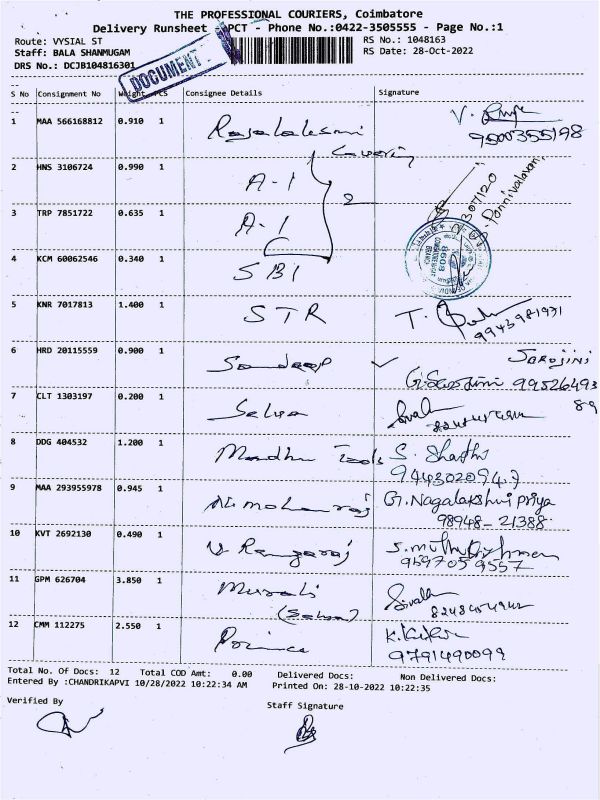 THE PROFESSIONAL COURIERS, Coimbatore
Delivery Runsheet PCT - Phone No.:0422-3505555 - Page No.:1
Route: VYSIAL ST
RS No.: 1048163
Staff: BALA SHANMUGAM
RS Date: 28-Oct-2022
DRS No.: DCJB104816301
DOCUMENT
S No Consignment No Weight PCS Consignee Details Signature
1 MAA 566168812 0.910 1 Rajalakshmi V.
9500355198
2 HNS 3106724 0.990 1 A-1
3 TRP 7851722 0.635 1 A-1 2
4 KCM 60062546 0.340 1 SBI
5 KNR 7017813 1.400 1 STR T.
9943981931
6 HRD 20115559 0.900 1 Sandeep SAROJINI
G. Sarojini 99526493
89
7 CLT 1303197 0.200 1 Selva
8 DDG 404532 1.200 1 Madhu Tools S. Shanthi
9443020947
9 MAA 293955978 0.945 1 N. mohanraj G. Nagalakshmi priya
98948-21388
10 KVT 2692130 0.490 1 V. Rangaraj S. muthukrishnan
9597059557
11 GPM 626704 3.850 1 Murali
(Selva)
12 CMM 112275 2.550 1 Prince K.
9791490099
Total No. Of Docs: 12 Total COD Amt: 0.00 Delivered Docs: Non Delivered Docs:
Entered By :CHANDRIKAPVI 10/28/2022 10:22:34 AM Printed On: 28-10-2022 10:22:35
Verified By
Staff Signature